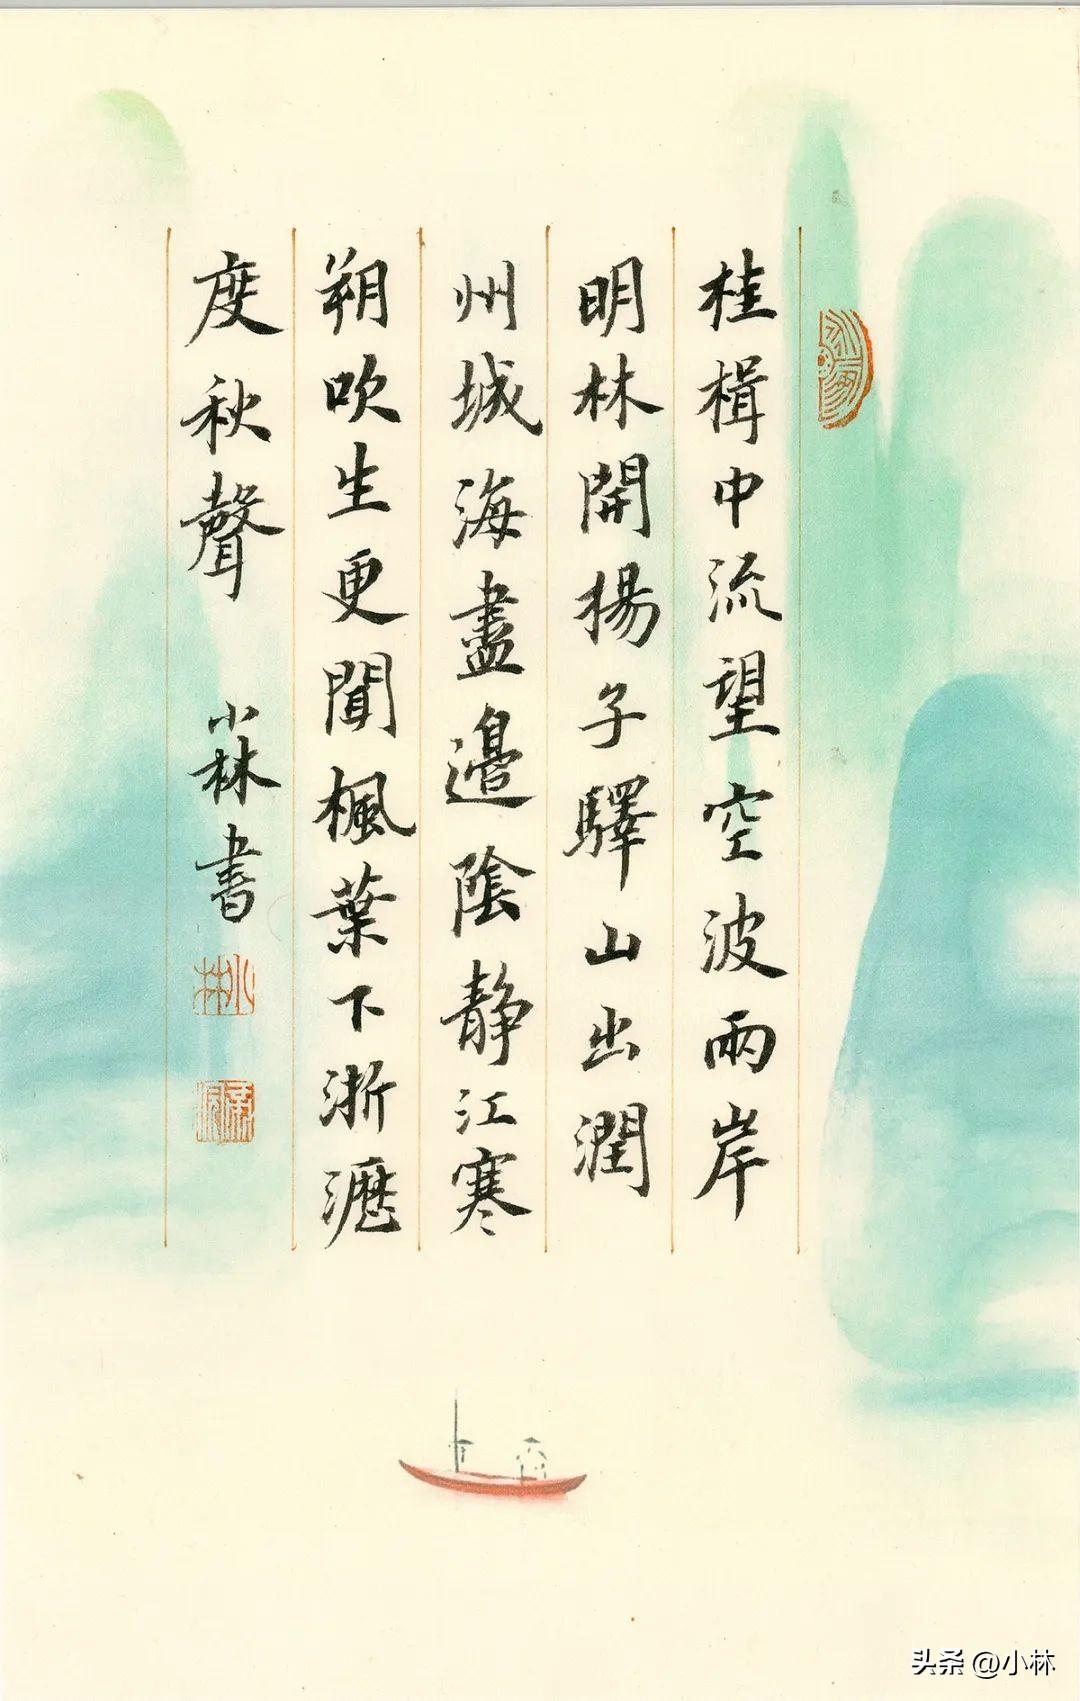 桂楫中流望空波兩岸
明林開揚子驛山出潤
州城海盡邉陰静江寒
朔吹生更聞楓葉下淅瀝
度秋聲 小林書
小林
头条 @小林